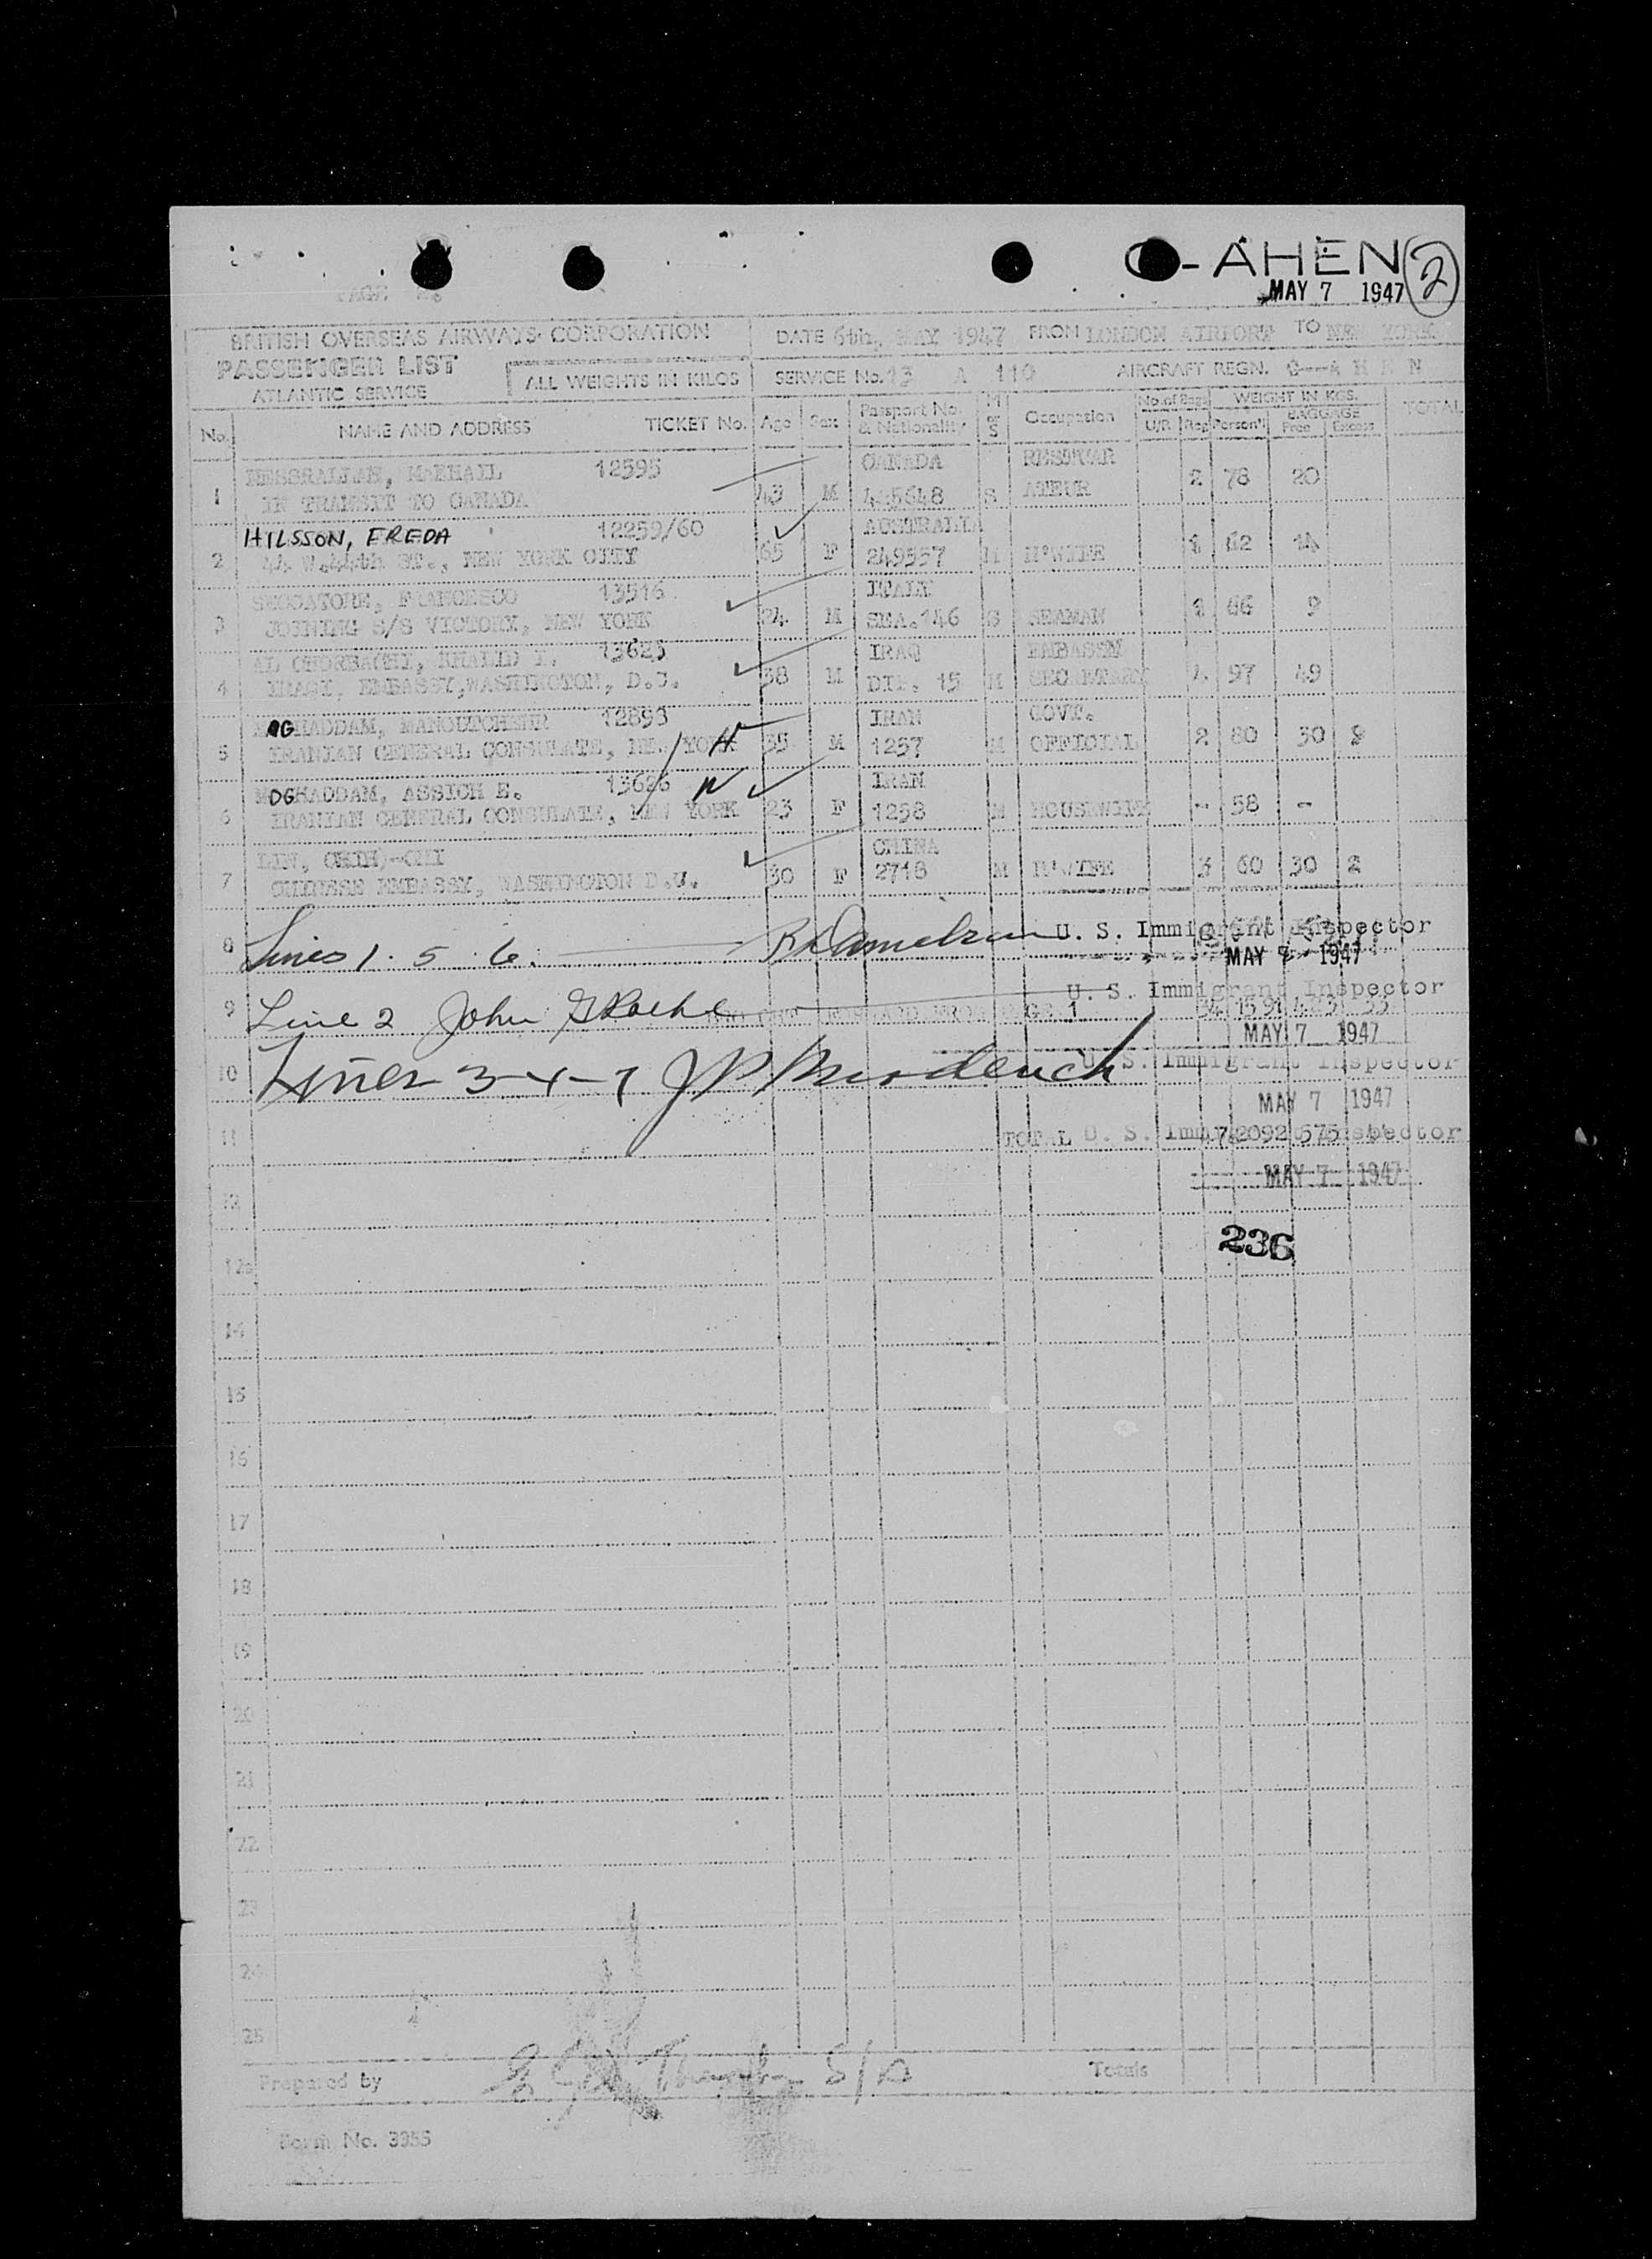 -AHEN 2
MAY 7 1947
PAGE
BRITISH OVERSEAS AIRWAYS CORPORATION DATE 6th, MAY 1947 FROM LONDON AIRPORT TO NEW YORK
PASSENGER LIST ALL WEIGHTS IN KILOS SERVICE No. 13 A 110 AIRCRAFT REGN. G---A H E N
ATLANTIC SERVICE
No. NAME AND ADDRESS TICKET No. Age Sex Passport No. & Nationality M or S Occupation No. of Bags U/R Reg WEIGHT IN KGS. Person'l BAGGAGE Free Excess TOTAL
12595 CANADA
1 IN TRANSIT TO CANADA 43 M S ATEUR 2 78 20
HILSSON, FREDA 12259/60
2 44 W.44th ST., NEW YORK CITY 65 F 249557 M H'WIFE 1 62 14
FRANCESCO 13516 ITALY
3 JOINING S/S VICTORY, NEW YORK 24 M SEA.146 S SEAMAN 1 66 9
AL KHALID I. 13625 IRAQ EMBASSY
4 IRAQI, EMBASSY, WASHINGTON, D.C. 38 M DIP. 15 M SECRETARY 4 97 49
MOGHADDAM, MANOUTCHEHR 12893 IRAN GOVT.
5 IRANIAN GENERAL CONSULATE, NEW YORK 35 M 1257 M OFFICIAL 2 80 30 9
MOGHADDAM, ASSICH E. 13626 IRAN
6 IRANIAN GENERAL CONSULATE, NEW YORK 23 F 1258 M HOUSEWIFE - 58 -
CHINA
7 CHINESE EMBASSY, WASHINGTON D.C. 30 F 2718 M H'WIFE 3 60 30 2
8 Lines 1. 5 6. U. S. Immigrant Inspector
MAY 7 1947
U. S. Immigrant Inspector
9 Line 2 John 1 34 1591 423 33
MAY 7 1947
10 Lines 3-4-7 U. S. Immigrant Inspector
MAY 7 1947
11 TOTAL U. S. Inspector 2092 575 44
MAY 7 1947
12
236
14
15
16
17
18
19
20
21
22
23
24
25
Prepared by Totals
Form No. 3955